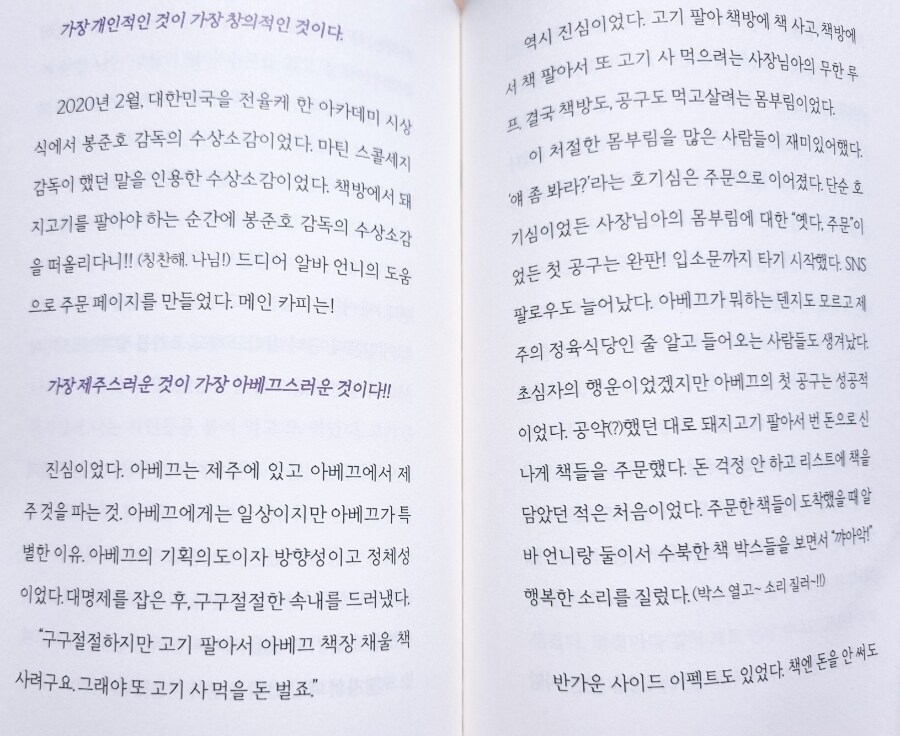 가장 개인적인 것이 가장 창의적인 것이다.
2020년 2월, 대한민국을 전율케 한 아카데미 시상
식에서 봉준호 감독의 수상소감이었다. 마틴 스콜세지
감독이 했던 말을 인용한 수상소감이었다. 책방에서 돼
지고기를 팔아야 하는 순간에 봉준호 감독의 수상소감
을 떠올리다니!! (칭찬해, 나님!) 드디어 알바 언니의 도움
으로 주문 페이지를 만들었다. 메인 카피는!
가장 제주스러운 것이 가장 아베끄스러운 것이다!!
진심이었다. 아베끄는 제주에 있고 아베끄에서 제
주 것을 파는 것. 아베끄에게는 일상이지만 아베끄가 특
별한 이유. 아베끄의 기획의도이자 방향성이고 정체성
이었다. 대명제를 잡은 후, 구구절절한 속내를 드러냈다.
“구구절절하지만 고기 팔아서 아베끄 책장 채울 책
사려구요. 그래야 또 고기 사 먹을 돈 벌죠.”
역시 진심이었다. 고기 팔아 책방에 책 사고, 책방에
서 책 팔아서 또 고기 사 먹으려는 사장님아의 무한 루
프. 결국 책방도, 공구도 먹고살려는 몸부림이었다.
이 처절한 몸부림을 많은 사람들이 재미있어했다.
‘얘 좀 봐라?’라는 호기심은 주문으로 이어졌다. 단순 호
기심이었든 사장님아의 몸부림에 대한 “옛다, 주문”이
었든 첫 공구는 완판! 입소문까지 타기 시작했다. SNS
팔로우도 늘어났다. 아베끄가 뭐하는 덴지도 모르고 제
주의 정육식당인 줄 알고 들어오는 사람들도 생겨났다.
초심자의 행운이었겠지만 아베끄의 첫 공구는 성공적
이었다. 공약(?)했던 대로 돼지고기 팔아서 번 돈으로 신
나게 책들을 주문했다. 돈 걱정 안 하고 리스트에 책을
담았던 적은 처음이었다. 주문한 책들이 도착했을 때 알
바 언니랑 둘이서 수북한 책 박스들을 보면서 “꺄아악!”
행복한 소리를 질렀다. (박스 열고~ 소리 질러~!!)
반가운 사이드 이펙트도 있었다. 책엔 돈을 안 써도